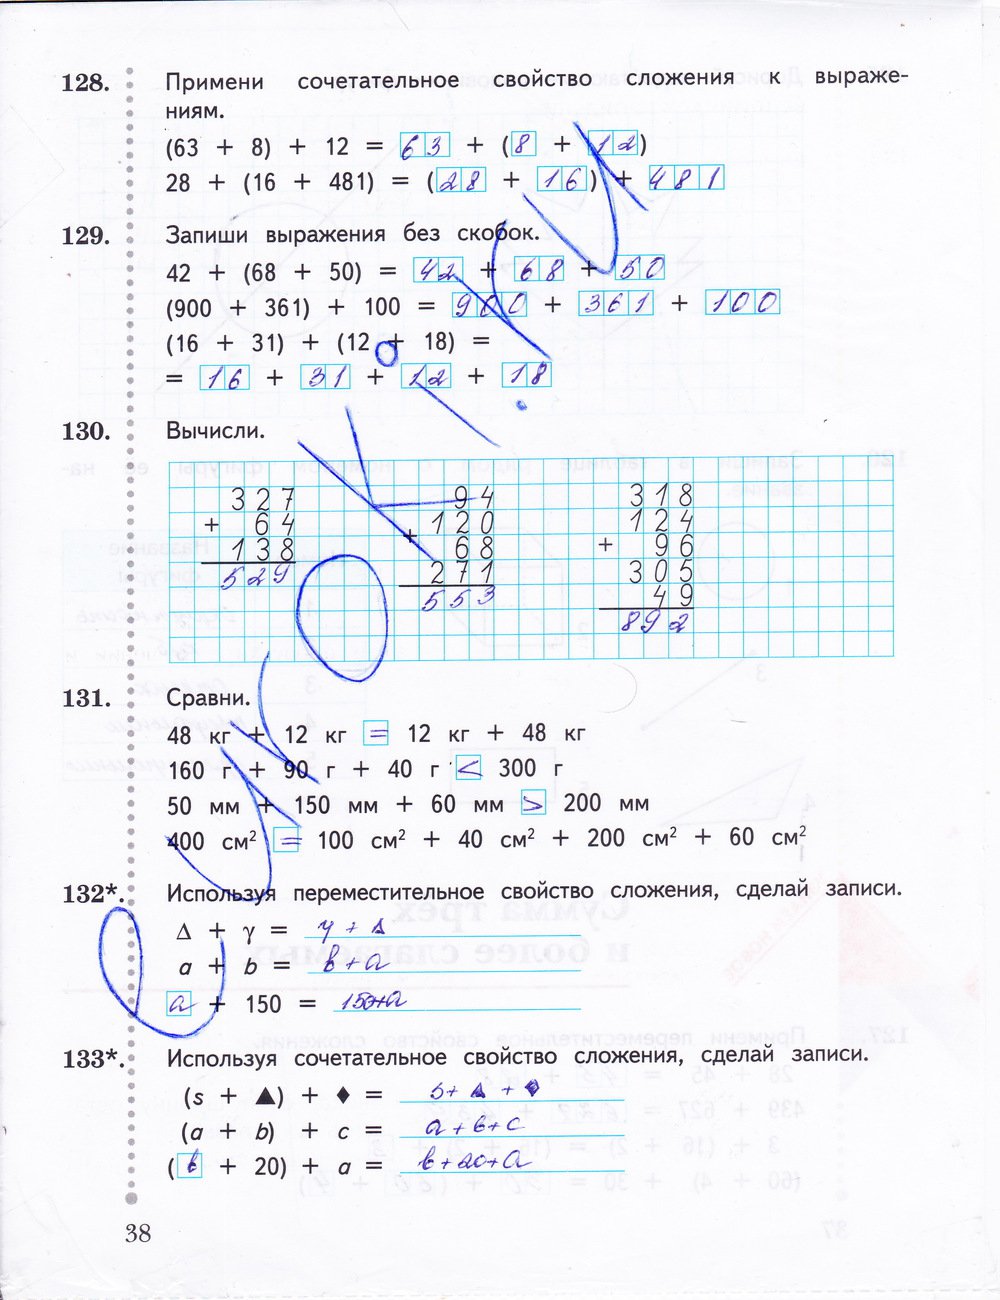 128. Примени сочетательное свойство сложения к выраже-
ниям.
(63 + 8) + 12 = 63 + (8 + 12)
28 + (16 + 481) = (28 + 16) + 481
129. Запиши выражения без скобок.
42 + (68 + 50) = 42 + 68 + 50
(900 + 361) + 100 = 900 + 361 + 100
(16 + 31) + (12 + 18) =
= 16 + 31 + 12 + 18
130. Вычисли.
327 94 318
+ 64 120 124
138 + 68 + 96
529 271 305
553 49
892
131. Сравни.
48 кг + 12 кг = 12 кг + 48 кг
160 г + 90 г + 40 г < 300 г
50 мм + 150 мм + 60 мм > 200 мм
400 см² = 100 см² + 40 см² + 200 см² + 60 см²
132*. Используя переместительное свойство сложения, сделай записи.
Δ + γ = γ + Δ
a + b = b + a
a + 150 = 150+a
133*. Используя сочетательное свойство сложения, сделай записи.
(s + ▲) + ♦ = s + ▲ + ♦
(a + b) + c = a + b + c
(b + 20) + a = b + 20 + a
38